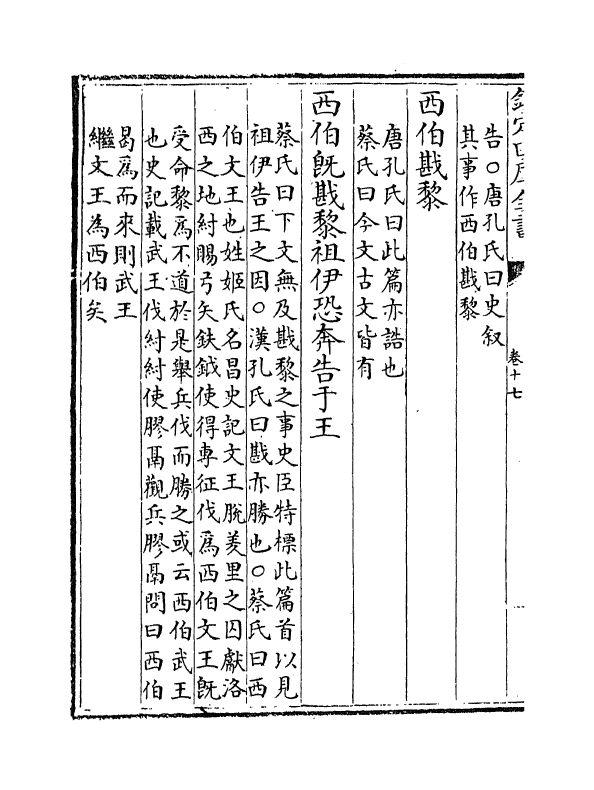 欽定四庫全書
卷十七
告○唐孔氏曰史叙
其事作西伯戡黎
西伯戡黎
唐孔氏曰此篇亦誥也
蔡氏曰今文古文皆有
西伯旣戡黎祖伊恐奔告于王
蔡氏曰下文無及戡黎之事史臣特標此篇首以見
祖伊告王之因○漢孔氏曰戡亦勝也○蔡氏曰西
伯文王也姓姬氏名昌史記文王脫羑里之囚獻洛
西之地紂賜弓矢鈇鉞使得專征伐爲西伯文王旣
受命黎爲不道於是舉兵伐而勝之或云西伯武王
也史記載武王伐紂紂使膠鬲觀兵膠鬲問曰西伯
曷爲而來則武王
繼文王為西伯矣